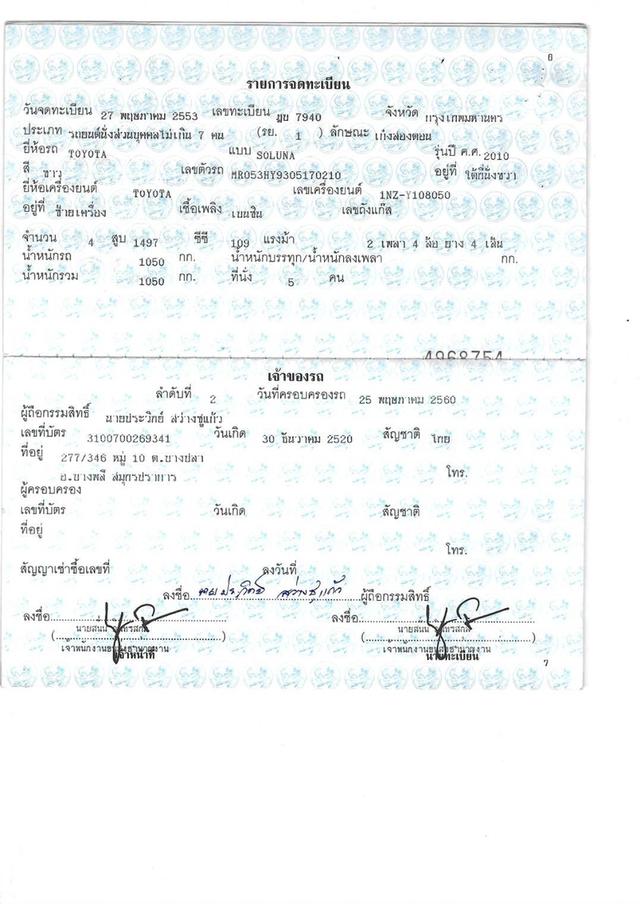 6
รายการจดทะเบียน
วันจดทะเบียน 27 พฤษภาคม 2553 เลขทะเบียน ฎย 7940 จังหวัด กรุงเทพมหานคร
ประเภท รถยนต์นั่งส่วนบุคคลไม่เกิน 7 คน (รย. 1 ) ลักษณะ เก๋งสองตอน
ยี่ห้อรถ TOYOTA แบบ SOLUNA รุ่นปี ค.ศ. 2010
สี ขาว เลขตัวรถ MR053HY9305170210 อยู่ที่ ใต้ที่นั่งขวา
ยี่ห้อเครื่องยนต์ TOYOTA เลขเครื่องยนต์ 1NZ-Y108050
อยู่ที่ ซ้ายเครื่อง เชื้อเพลิง เบนซิน เลขถังแก๊ส
จำนวน 4 สูบ 1497 ซีซี 109 แรงม้า 2 เพลา 4 ล้อ ยาง 4 เส้น
น้ำหนักรถ 1050 กก. น้ำหนักบรรทุก/น้ำหนักลงเพลา กก.
น้ำหนักรวม 1050 กก. ที่นั่ง 5 คน
4968754
เจ้าของรถ
ลำดับที่ 2 วันที่ครอบครองรถ 25 พฤษภาคม 2560
ผู้ถือกรรมสิทธิ์ นายประวิทย์ สว่างชูแก้ว
เลขที่บัตร 3100700269341 วันเกิด 30 ธันวาคม 2520 สัญชาติ ไทย
ที่อยู่ 277/346 หมู่ 10 ต.บางปลา
อ.บางพลี สมุทรปราการ โทร.
ผู้ครอบครอง
เลขที่บัตร วันเกิด สัญชาติ
ที่อยู่
โทร.
สัญญาเช่าซื้อเลขที่ ลงวันที่
ลงชื่อ นายประวิทย์ สว่างชูแก้ว ผู้ถือกรรมสิทธิ์
ลงชื่อ ลงชื่อ
เจ้าหน้าที่ นายทะเบียน
7